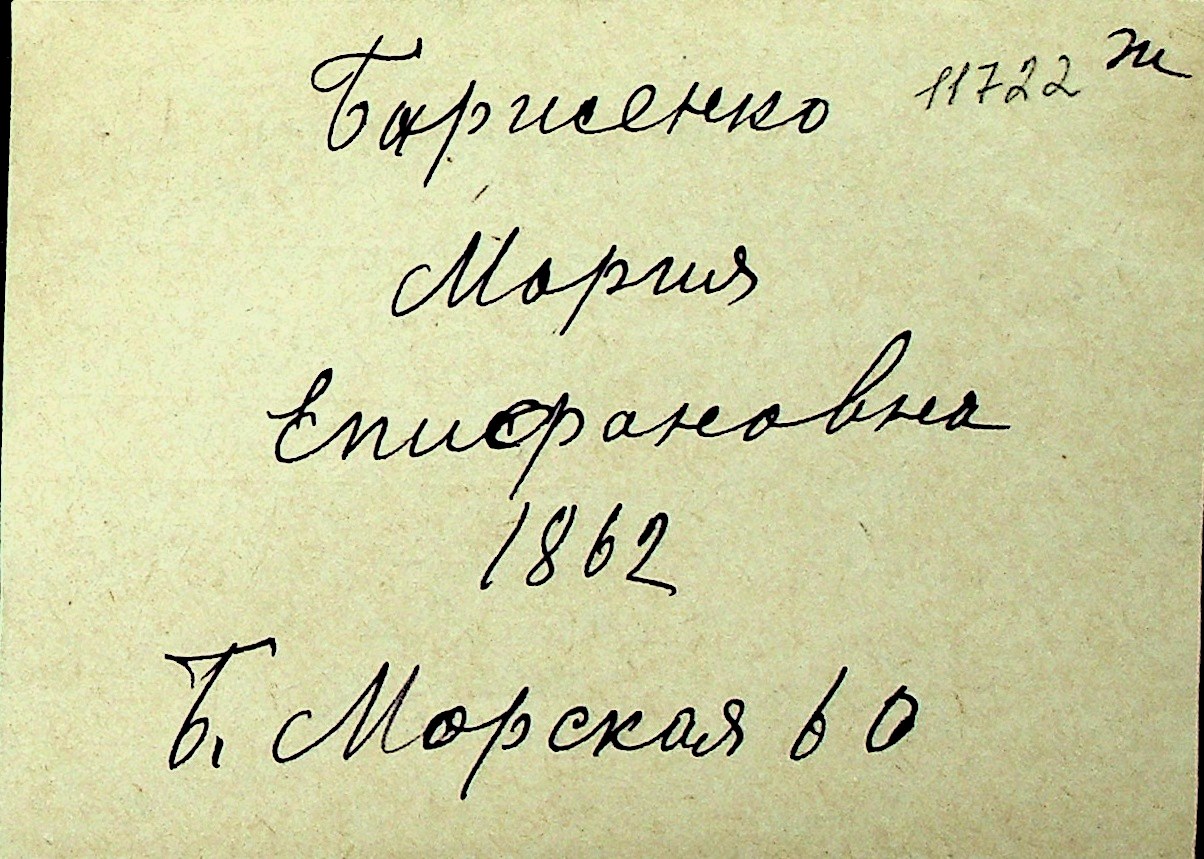 Барисенко 11722 ж
Мария
Епифановна
1862
Б. Морская 60